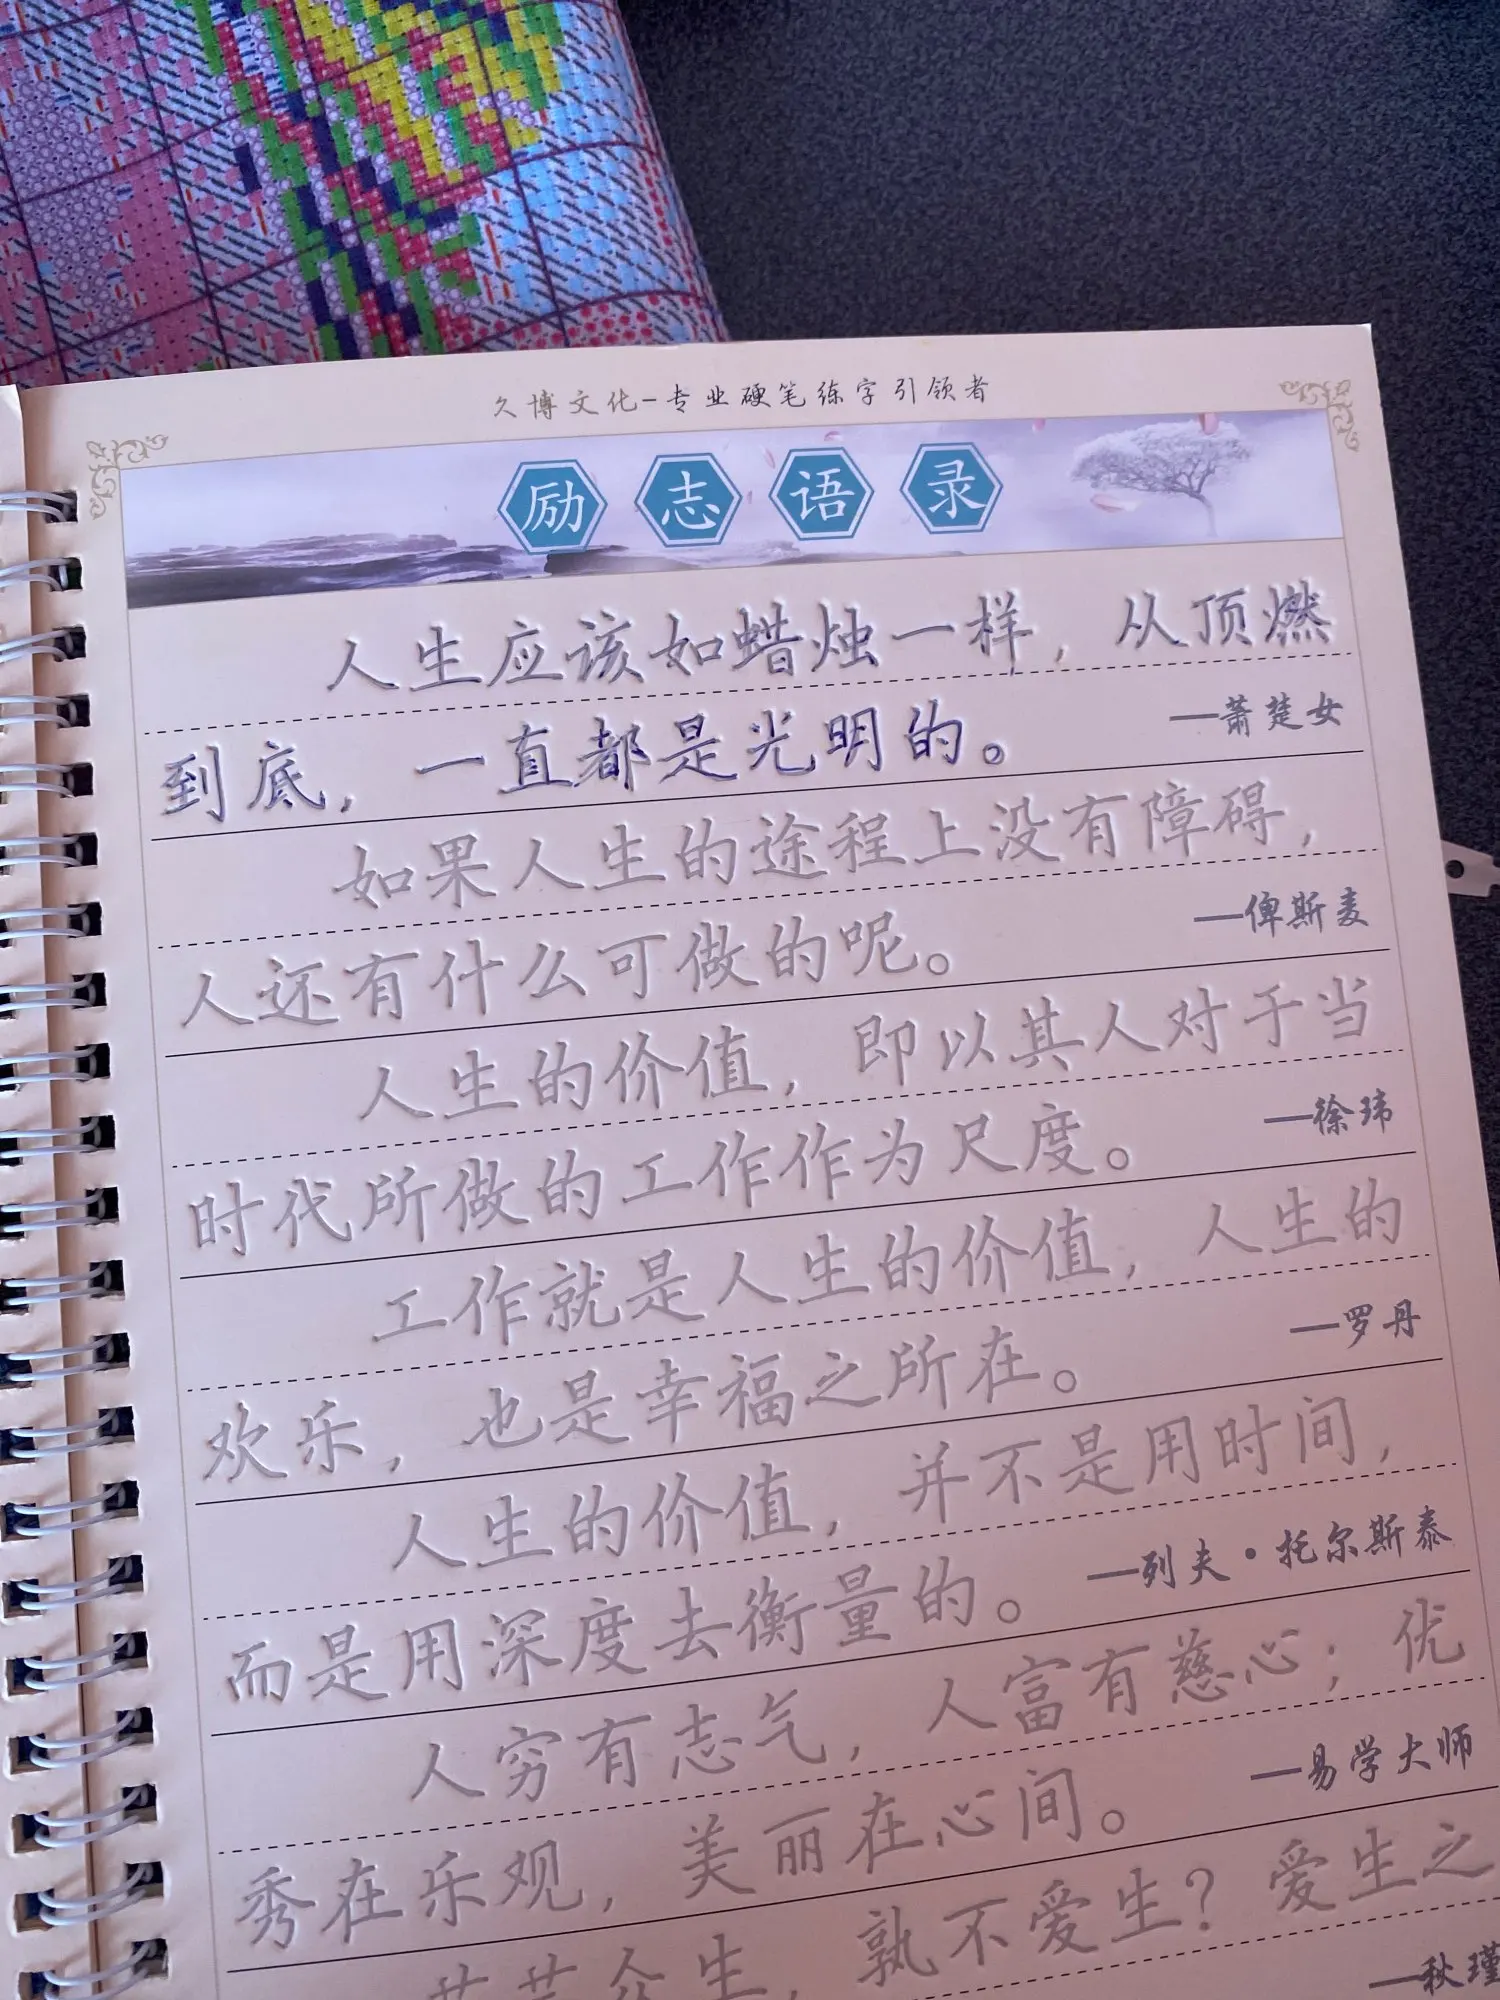 久博文化-专业硬笔练字引领者
励志语录
人生应该如蜡烛一样，从顶燃
到底，一直都是光明的。
—萧楚女
如果人生的途程上没有障碍，
人还有什么可做的呢。
—俾斯麦
人生的价值，即以其人对于当
时代所做的工作作为尺度。
—徐玮
工作就是人生的价值，人生的
欢乐，也是幸福之所在。
—罗丹
人生的价值，并不是用时间，
而是用深度去衡量的。
—列夫·托尔斯泰
人穷有志气，人富有慈心；优
秀在乐观，美丽在心间。
—易学大师
芸芸众生，孰不爱生？爱生之
—秋瑾